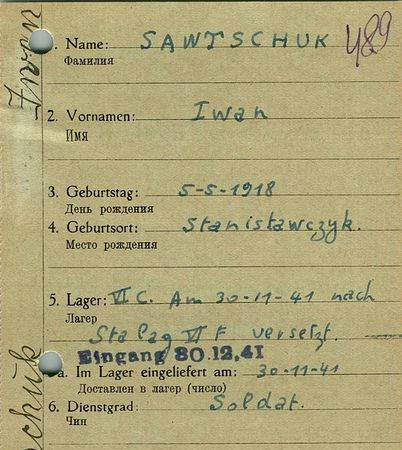 1. Name: SAWTSCHUK 489
Фамилия
2. Vornamen: Iwan
Имя
3. Geburtstag: 5-5-1918
День рождения
4. Geburtsort: Stanisławczyk.
Место рождения
5. Lager: VI C. Am 30-11-41 nach
Лагер
Stalag VI F versetzt.
Eingang 30.12.41
a. Im Lager eingeliefert am: 30-11-41
Доставлен в лагер (число)
6. Dienstgrad: Soldat.
Чин
Iwan
chuk